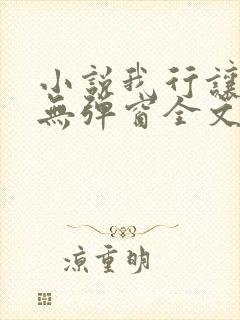 小説我行讓
無彈窗全文
凉重明